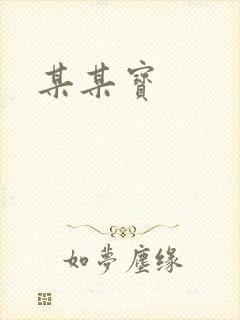 某某寶
如夢塵缘